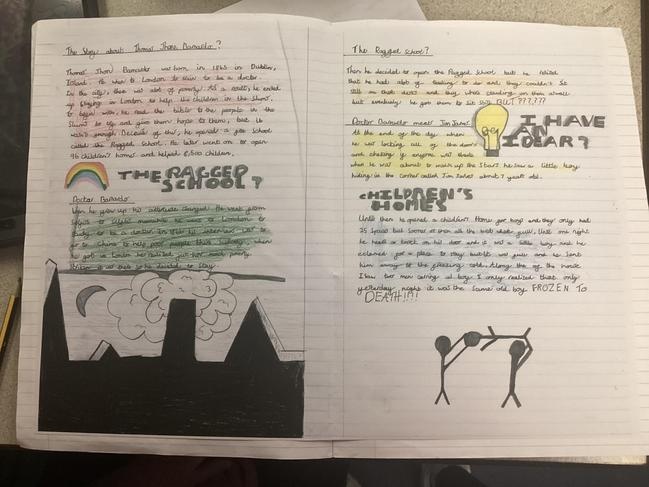 The Story about Thomas Jhon Barnardo?
Thomas Jhon Barnardo was born in 1845 in Dublin,
Irland. He went to London to train to be a doctor.
In the city, there was alot of poverty. As a result, he ended
up staying in London to help the children in the slums,
to begin with, he read the bible to the people in the
Slums to try and give them hope to them, but it
wasn't enough. Because of this, he opened a free School
called the Ragged School. He later went on to open
96 children's homes and helped 8,500 children.
THE RAGGED
SCHOOL?
Doctor Barnardo
When he grew up his attitude changed. He went from
to London to
study to be a doctor in
go to China to help poor people
got to London he realised just how much poverty
so he decided to stay.
The Ragged School?
Then he decided to open the Ragged School but he
that he had alot of teaching to do and they couldn't sit
still on their desks and they where standing on them aswell
but eventually he got them to sit still BUT ??????
Doctor Barnardo meets Jim Jarvis
At the end of the day when
he was locking all of the doors
and checking if anyone was there
when he was about to walk up the stairs he saw a little boy
hiding in the corner called Jim Jarvis about 7 years old.
I HAVE
AN
IDEAR?
CHILDREN'S
HOMES
Until then he opened a children's Home for boys and they only had
25 spaces but sooner or then all the beds where full. Until one night
he heard a knock on his door and it was a little boy and he
for a place to stay but it was full and he sent
him away to the freezing cold. Along the of the horse
I saw two men caring a boy I only realized that only
yesterday night it was the same old boy FROZEN TO
DEATH!!!